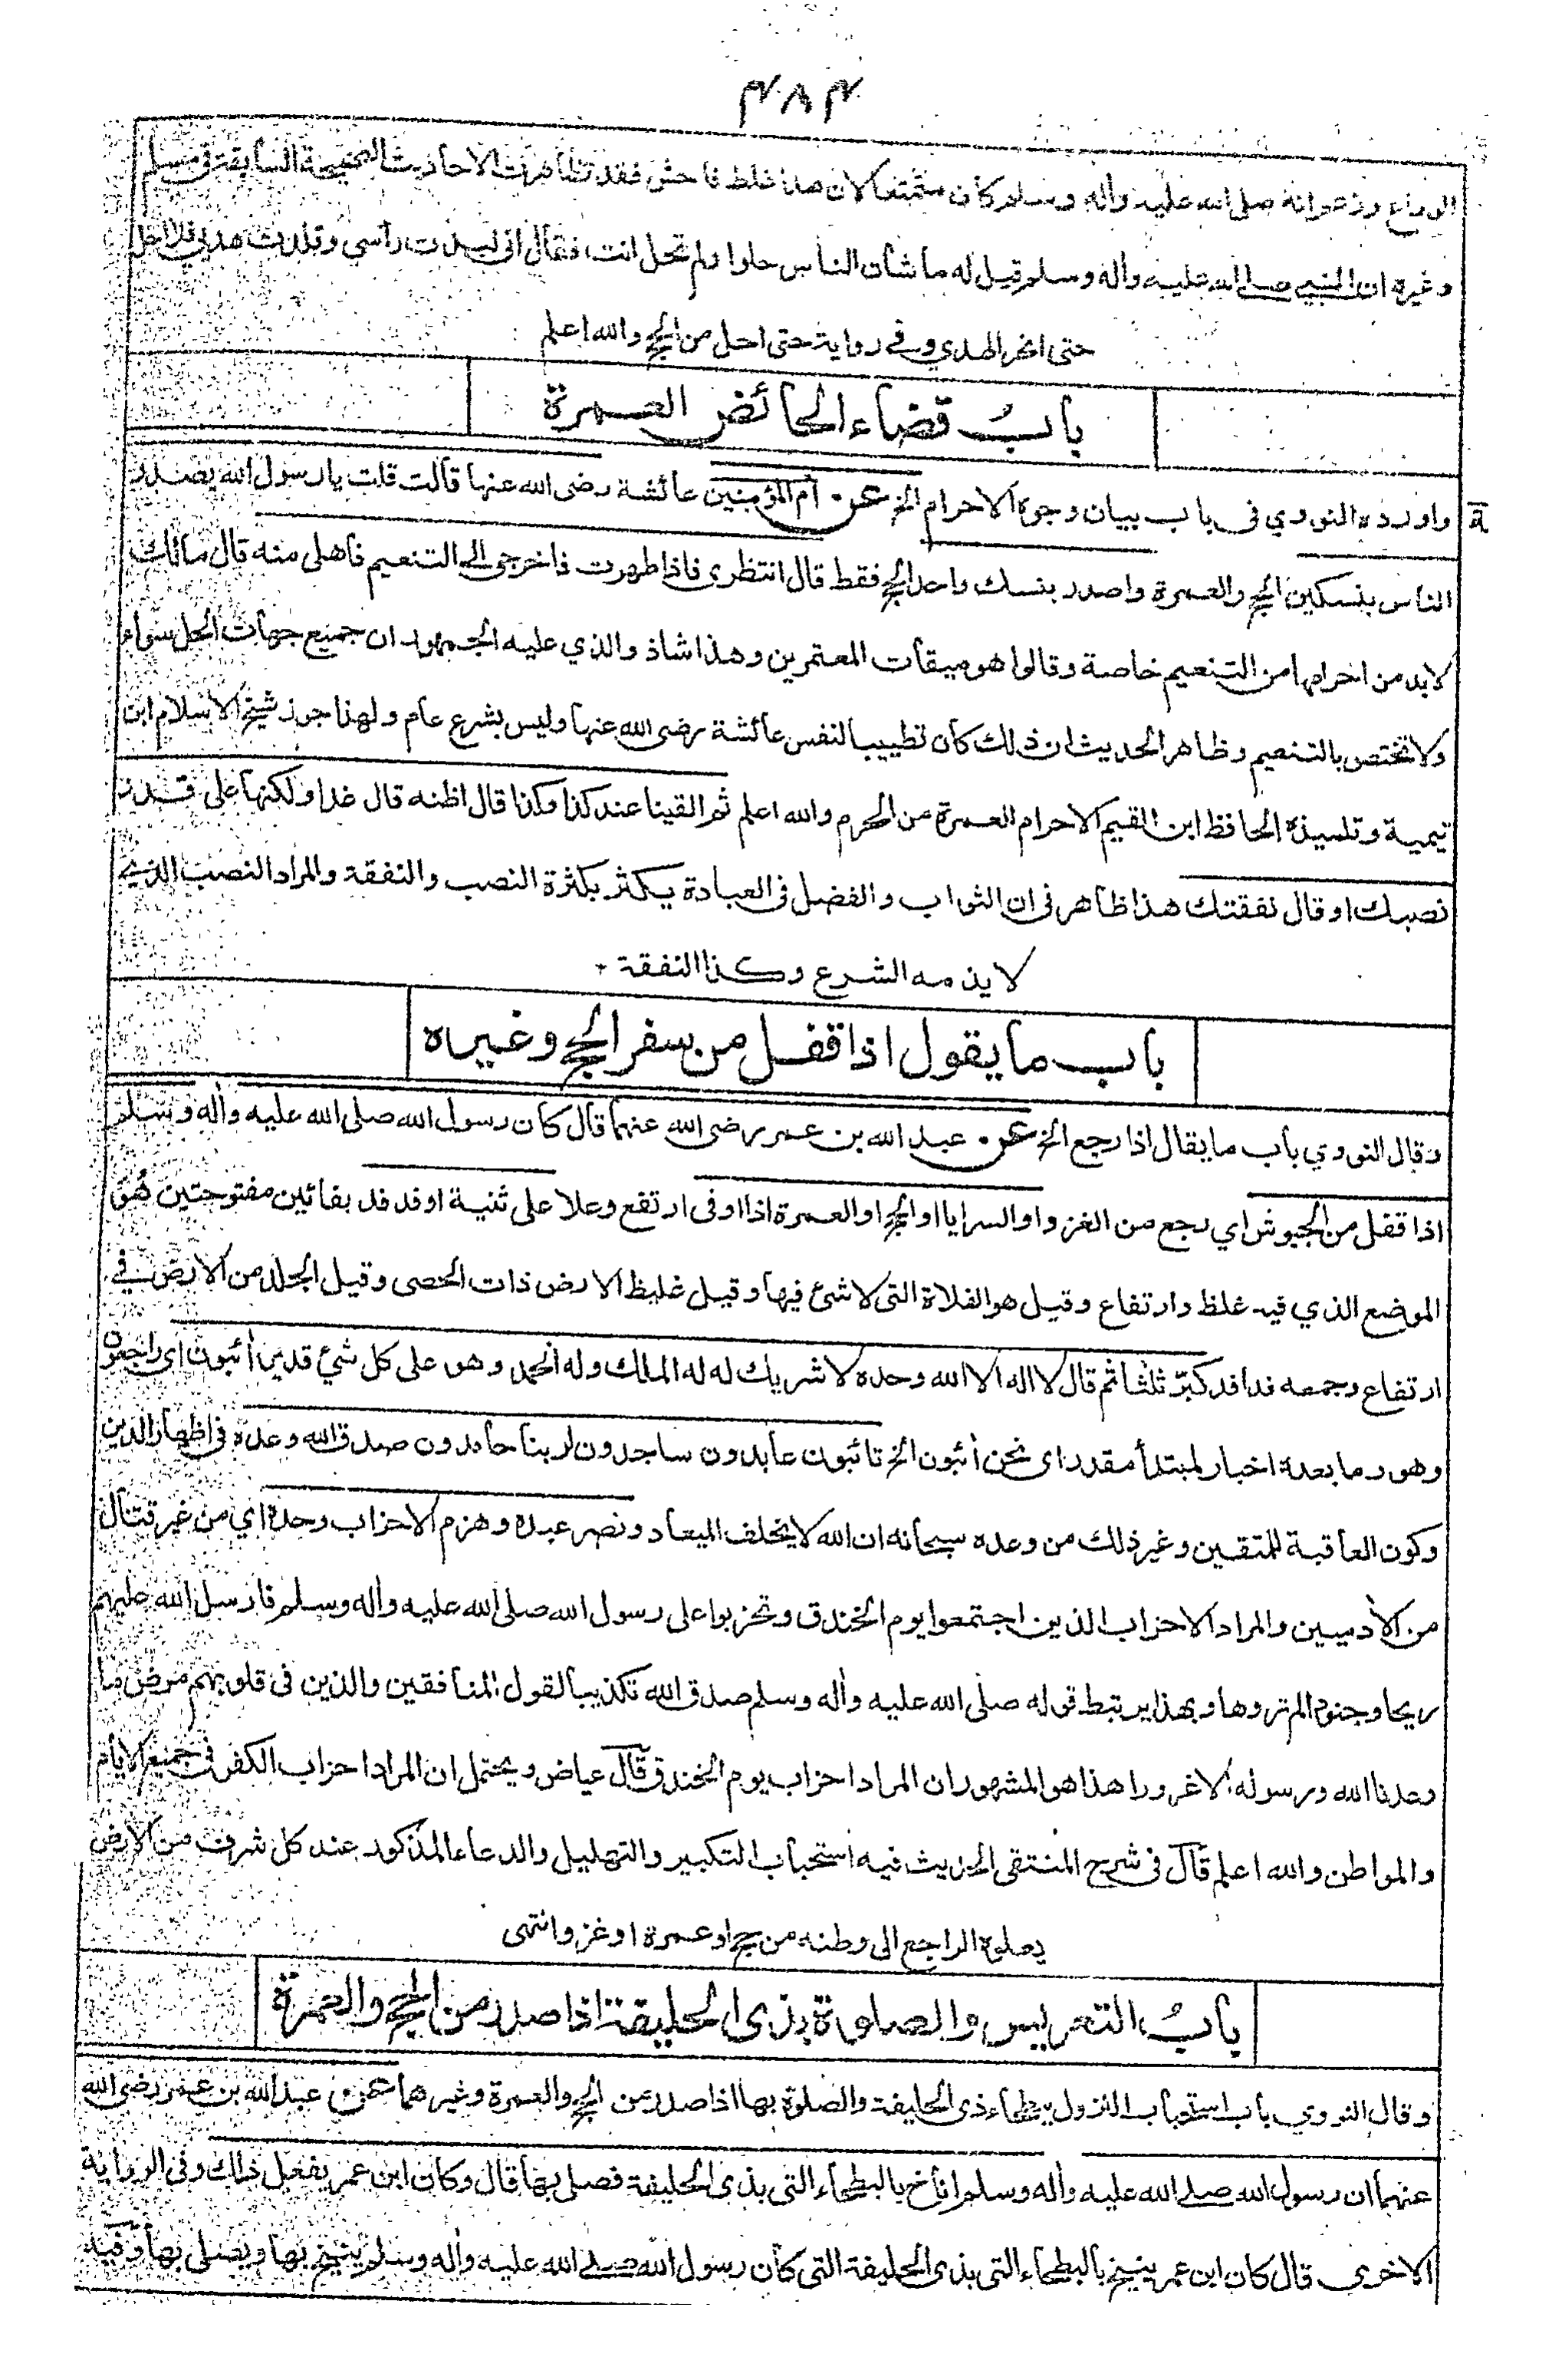 ٣٨٣
الوداع وزعم انه صلى الله عليه واله وسلم كان متمتعا لان هذا غلط فاحش فقد تظاهرت الاحاديث الصحيحة السابقة فى مسلم
وغيره ان النبي صلے الله عليه واله وسلم قيل له ما شأن الناس حلوا ولم تحل انت فقال انى لبدت رأسي وقلدت هديي فلا احل
حتى انحر الهدي وفے رواية حتى احل من الحج والله اعلم
بابُ قضاء الحائض العمرة
واورده النووي فى باب بيان وجوه الاحرام الخ عن أم المؤمنين عائشة رضى الله عنها قالت قلت يا رسول الله يصدر
الناس بنسكين الحج والعمرة واصدر بنسك واحد الحج فقط قال انتظرى فاذا طهرت فاخرجى الى التنعيم فاهلى منه قال مالك
لا بد من احرامها من التنعيم خاصة وقالوا هو ميقات المعتمرين وهذا شاذ والذي عليه الجمهور ان جميع جهات الحل سواء
ولا تختص بالتنعيم وظاهر الحديث ان ذلك كان تطييبا لنفس عائشة رضى الله عنها وليس بشرع عام ولهذا جوز شيخ الاسلام ابن
تيمية وتلميذه الحافظ ابن القيم الاحرام العمرة من الحرم والله اعلم ثم القينا عند كذا وكذا قال اظنه قال غدا ولكنها على قدر
نصبك او قال نفقتك هذا ظاهر فى ان الثواب والفضل فى العبادة يكثر بكثرة النصب والنفقة والمراد النصب الذي
لا يذمه الشرع وكذا النفقة
باب ما يقول اذا قفل من سفر الحج وغيره
وقال النووي باب ما يقال اذا رجع الخ عن عبد الله بن عمر رضى الله عنهما قال كان رسول الله صلى الله عليه واله وسلم
اذا قفل من الجيوش اي رجع من الغزو او السرايا او الحج او العمرة اذا اوفى ارتفع وعلا على ثنية او فدفد بفائين مفتوحتين هو
الموضع الذي فيه غلظ وارتفاع وقيل هو الفلاة التى لا شئ فيها وقيل غليظ الارض ذات الحصى وقيل الجلد من الارض فى
ارتفاع وجمعه فدافد كبّر ثلثا ثم قال لا اله الا الله وحده لا شريك له له الملك وله الحمد وهو على كل شئ قدير أئبون اى راجعون
وهو وما بعده اخبار لمبتدأ مقدر اى نحن أئبون الخ تائبون عابدون ساجدون لربنا حامدون صدق الله وعده فى اظهار الدين
وكون العاقبة للمتقين وغير ذلك من وعده سبحانه ان الله لا يخلف الميعاد ونصر عبده وهزم الاحزاب وحده اي من غير قتال
من الأدميين والمراد الاحزاب الذين اجتمعوا يوم الخندق وتحزبوا على رسول الله صلى الله عليه واله وسلم فارسل الله عليهم
ريحا وجنودا لم تروها وبهذا يرتبط قوله صلى الله عليه واله وسلم صدق الله تكذيبا لقول المنافقين والذين فى قلوبهم مرض ما
وعدنا الله ورسوله الا غرورا هذا هو المشهور ان المراد احزاب يوم الخندق قال عياض ويحتمل ان المراد احزاب الكفر فى جميع الايام
والمواطن والله اعلم قال فى شرح المنتقى الحديث فيه استحباب التكبير والتهليل والدعاء المذكور عند كل شرف من الارض
يعلوه الراجع الى وطنه من حج او عمرة او غزو انتهى
بابُ التعريس والصلوة بذى الحليفة اذا صدر من الحج والعمرة
وقال النووي باب استحباب النزول ببطحاء ذى الحليفة والصلوة بها اذا صدر من الحج والعمرة وغيرهما عن عبد الله بن عمر رضى الله
عنهما ان رسول الله صلے الله عليه واله وسلم اناخ بالبطحاء التى بذى الحليفة فصلى بها قال وكان ابن عمر يفعل ذلك وفى الرواية
الاخرى قال كان ابن عمر ينيخ بالبطحاء التى بذى الحليفة التى كان رسول الله صلے الله عليه واله وسلم ينيخ بها ويصلى بها وفيه